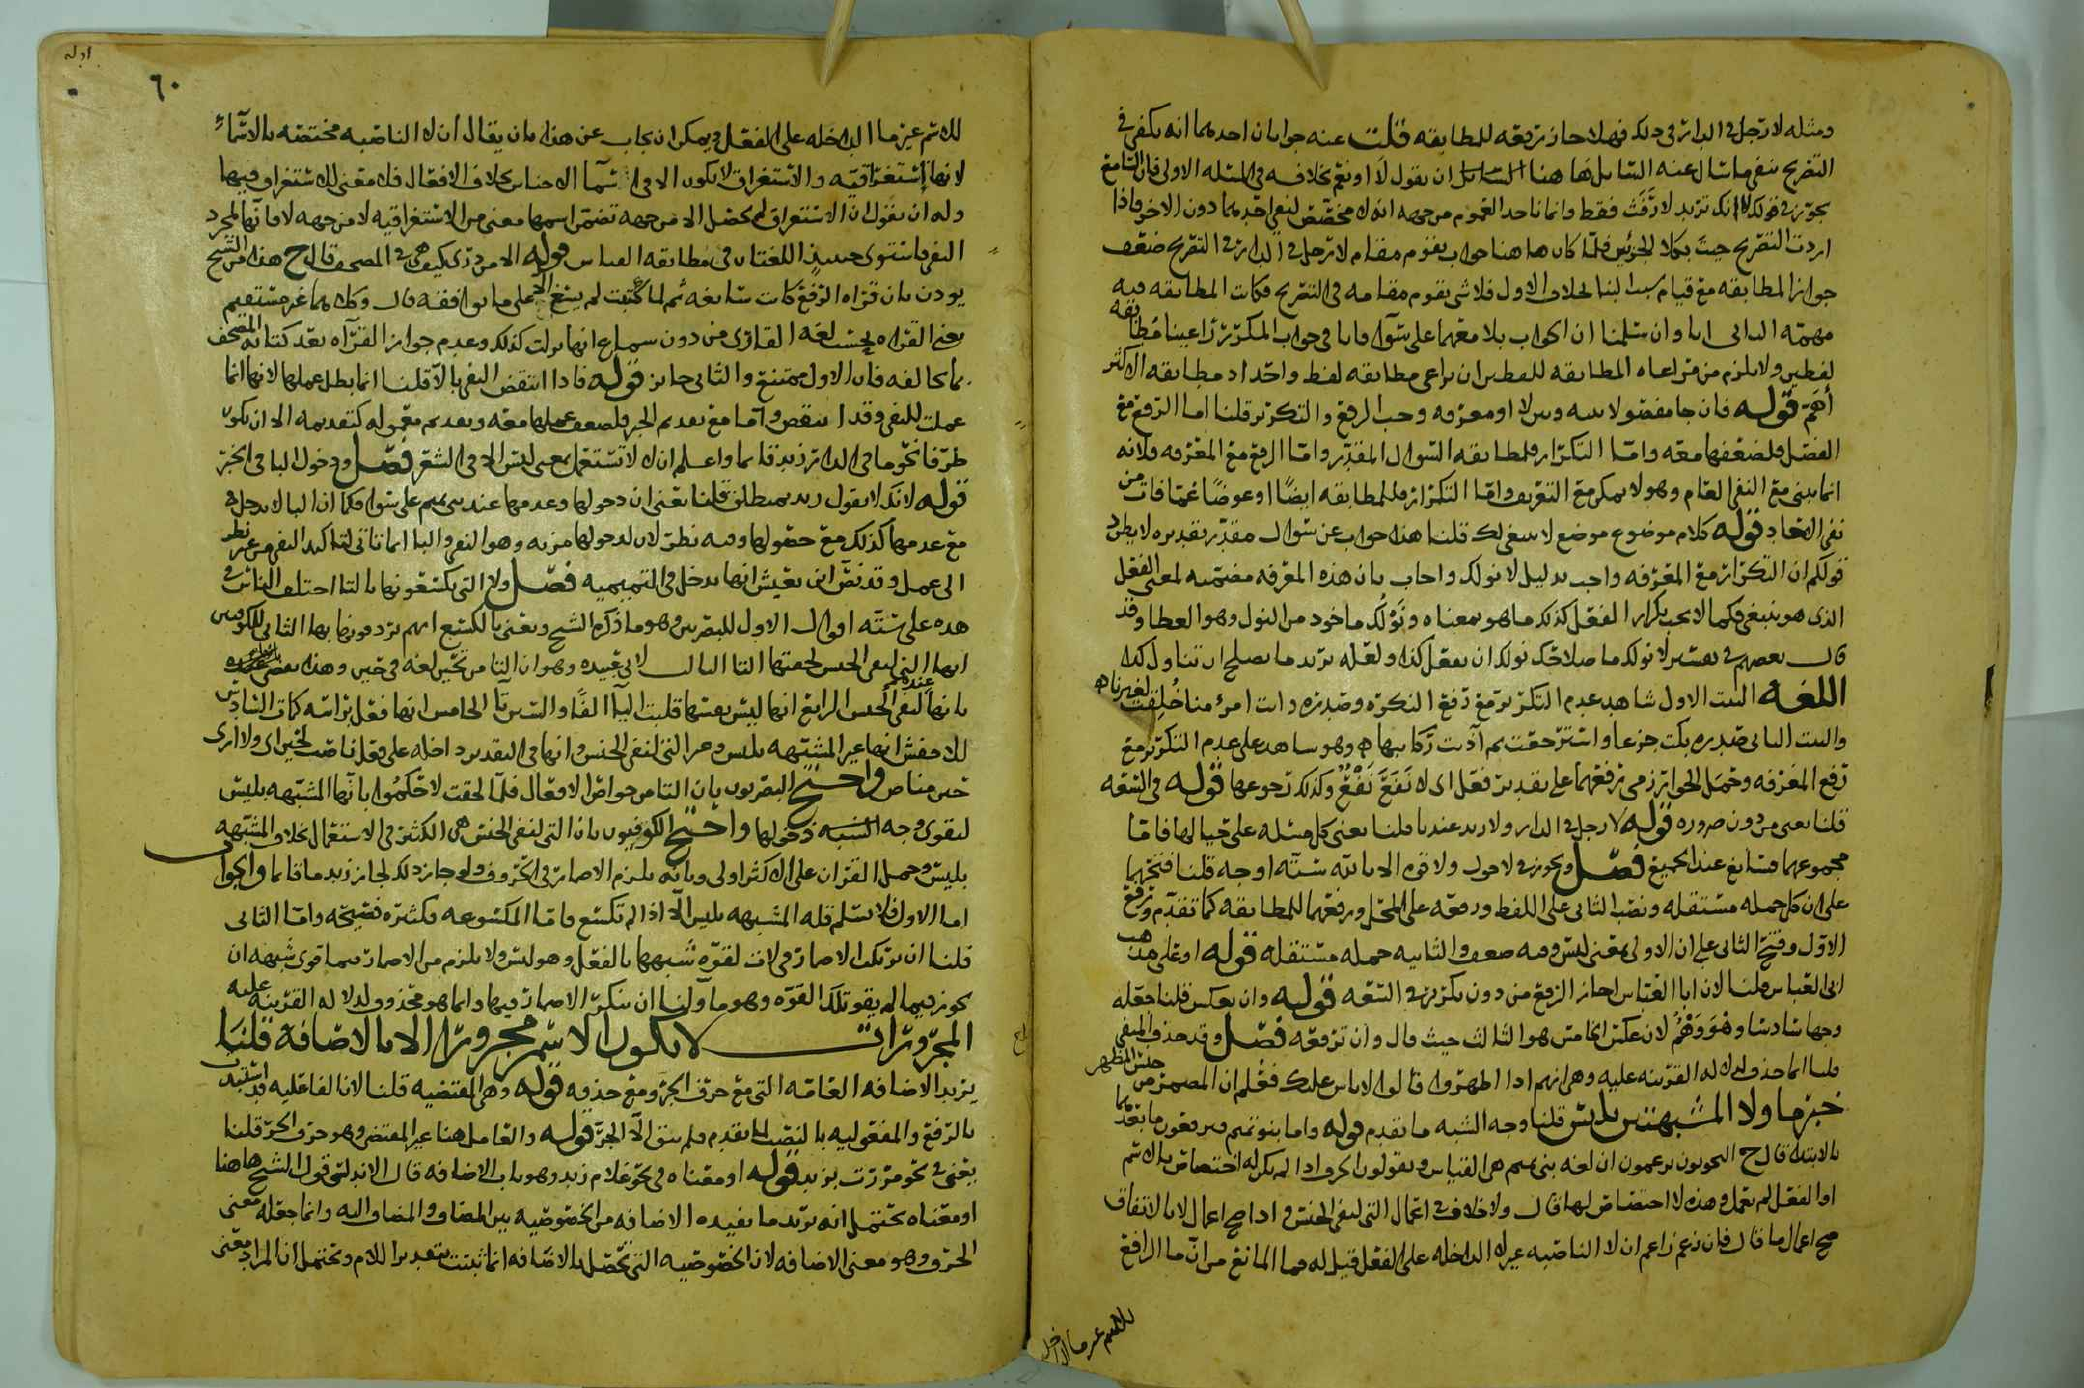 ومثله لا رجل في الدار في ذلك فهلا جاز رفعه للمطابقه قلت عنه جوابان احدهما انه يكفي في
التصريح بنفي ما سال عنه السائل هاهنا ان يقول لا او نعم بخلافه في المسله الاولى فان
اردت التصريح جيت بكلا الجزئين فلما كان هاهنا جواب يقوم مقام لا رجل في الدار في التصريح ضعف
جواز المطابقه مع قيام بخلاف الاول فلا شي يقوم مقامه في التصريح فكانت المطابقه فيه
مهمه الثاني انا وان سلمنا ان الجواب بلا معهما على سوال فانا في جواب المكرر راعينا مطابقه
لفظين ولا يلزم من مراعاه المطابقه للفظين ان يراعى مطابقه لفظ واحد اذ مطابقه الاكثر
اهم قوله فان جا مفصولا بينه وبين لا او معرفه وجب الرفع والتكرير قلنا اما الرفع مع
الفصل فلضعفها معه واما التكرار فلمطابقه السوال المقدر واما الرفع مع المعرفه فلانه
انما بني مع النفي العام وهو لا يمكن مع التعريف واما التكرار فللمطابقه ايضًا او عوضًا عما فات من
نفي الاتحاد قوله كلام موضوع موضع لا ينبغي لك قلنا هذا جواب عن سوال مقدر تقديره لا يطرد
قولكم ان التكرار مع المعرفه واجب بدليل لا نولك واجاب بان هذه المعرفه مضمنه لمعنى الفعل
الذي هو ينبغي فكما لا يجب تكرار الفعل كذلك ما هو بمعناه ونولك ماخوذ من النول وهو العطا وقد
قال بعضهم في تفسير لا نولك ما صلاحك نولك ان تفعل كذا ولعله يريد ما يصلح ان تتناول كذا
اللغه البيت الاول شاهد عدم التكرير مع رفع النكره وصدره وانت امرؤ منا خلقت لغيرنا
والبيت الثاني صدره بكت جزعا واسترجعت ثم آذنت ركائبها وهو شاهد على عدم التكرير مع
رفع المعرفه وحمل الجواز رمي رفعهما على تقدير فعل اي لا نفع نفع وكذلك رجوعها قوله في السعه
قلنا يعني من دون ضروره قوله لا رجل في الدار ولا زيد عندنا قلنا يعني كل مسله على حيالها فاما
مجموعهما فشايع عند الجميع فصل ويجوز في لا حول ولا قوه الا بالله سته اوجه قلنا فتحهما
على ان كل جمله مستقله ونصب الثاني على اللفظ ورفعه على المحل ورفعهما للمطابقه كما تقدم ورفع
الاول وفتح الثاني على ان الاولى بمعنى ليس وفيه ضعف والثانيه جمله مستقله قوله او على مذهب
ابي العباس قلنا لان ابا العباس اجاز الرفع من دون تكرير في السعه قوله وان يعكس قلنا جعله
وجها سادسا وهو وَهْمٌ لان عكس الخامس هو الثالث حيث قال وان ترفعه فصل وقد حذف المنفي
قلنا انما حذف لدلاله القرينه عليه وهي انهم اذا اظهروا قالوا لا باس عليك فعلم ان المضمر من جنس المظهر
خبر ما ولا المشبهتين بليس قلنا وجه الشبه ما تقدم قوله واما بنو تميم فيرفعون ما بعدهما
بالابتدا قال ح النحويون يزعمون ان لغه بني تميم هي القياس ويقولون الحرف اذا لم يكن له اختصاص بالاسم
او الفعل لم يعمل وهذه لا اختصاص لها قال ولا خلاف في اعمال التي لنفي الجنس واذا صح اعمال لا بالاتفاق
صح اعمال ما قال فان زعم زاعم ان لا الناصبه غير لا الداخله على الفعل قيل له فما المانع من ان ما الرافع
للاسم غير ما الداخل
ادله
٦٠
للاسم غير ما الداخله على الفعل ويمكن ان يجاب عن هذا بان يقال ان لا الناصبه مختصه بالاسماء
لانها استغراقيه والاستغراق لا يكون الا في اسما الاجناس بخلاف الافعال فلا معنى للاستغراق فيها
وله ان يقول ان الاستغراق لم يحصل الا من جهه تضمن اسمها معنى من الاستغراقيه لا من جهه لا فانها لمجرد
النفي فاستوى حينئذ اللغتان في مطابقه القياس قوله الا من درى كيف هي في المصحف قال ح هذا من الشيخ
يوذن بان قراه الرفع كانت سايغه ثم لما كتبت لم يسغ الا على ما يوافقه قال وكلاهما غير مستقيم
يعني القراه بحسب لغه القارئ من دون سماع انها نزلت كذلك وعدم جواز القرآه بعد كتابه المصحف
بما يخالفه فان الاول ممتنع والثاني جايز قوله فاذا انتقض النفي بالا قلنا انما بطل عملها لانها انما
عملت للنفي وقد انتقض واما مع تقديم الخبر فلضعف عملها معه وتقديم معموله كتقديمه الا ان يكون
ظرفا نحو ما في الدار زيد قايما واعلم ان لا لا تستعمل بمعنى ليس الا في الشعر فصل ودخول البا في الخبر
قوله لانك لا تقول زيد بمنطلق قلنا يعني ان دخولها وعدمها عند بني تميم على سوا فكما ان البا لا تدخل
مع عدمها كذلك مع حصولها وفيه نظر لان لدخولها مزيه وهو النفي والبا انما تاتي لتاكيد النفي من غير نظر
الى عمل وقد نص ابن يعيش انها تدخل في التميميه فصل ولا التي يكسعونها بالتا اختلف الناس في
هذه على سته اقوال الاول للبصريين وهو ما ذكره الشيخ ويعني بالكسع انهم يردفونها بها الثاني للكوفيين
انها التي لنفي الجنس لحقتها التا الثالث لابي عبيده وهو ان التا من تحين لغه في حين وهذا يقضي عنده
بانها لنفي الجنس الرابع انها ليس بعينها قلبت اليآ الفًا والسين تآ الخامس انها فعل براسه كمات السادس
للاخفش انها غير المشبهه بليس وغير التي لنفي الجنس وانها في التقدير داخله على فعل ناصب لحين اي ولا ارى
حين مناص واحتج البصريون بان التا من خواص الافعال فلما لحقت لا حكموا بانها المشبهه بليس
ليقوى وجه الشبه دخولها واحتج الكوفيون بان التي لنفي الجنس هي الكثير في الاستعمال بخلاف المشبهه
بليس وحمل القران على الاكثر اولى وبانه يلزم الاضمار في الحروف ولو جاز ذلك لجاز زيد ما قايما والجواب
اما الاول فلا نسلم قله المشبهه بليس الا اذا لم تكسع فاما المكسوعه فكثيره فصيحه واما الثاني
قلنا ان نرتكب الاضمار في لات لقوه شبهها بالفعل وهو ليس ولا يلزم من الاضمار فيما قوي شبهه ان
يجوز فيما لم يقو تلك القوه وهو ما ولنا ان ننكر الاضمار فيها وانما هو محذوف لدلاله القرينه عليه
المجرورات لا يكون الاسم مجرورا الا بالاضافه قلنا
يريد الاضافه العامه التي مع حرف الجر ومع حذفه قوله وهي المقتضيه قلنا لان الفاعليه قد استبدت
بالرفع والمفعوليه بالنصب لما تقدم فلم يبق الا الجر قوله والعامل هنا غير المقتضي وهو حرف الجر قلنا
يعني في نحو مررت بزيد قوله او معناه في نحو غلام زيد وهو باب الاضافه قال الاندلسي قول الشيخ هاهنا
او معناه يحتمل انه يريد ما يفيده الاضافه من الخصوصيه بين المضاف والمضاف اليه وانما جعله معنى
الحرف وهو معنى الاضافه لان الخصوصيه التي تحصل بالاضافه انما ثبتت بتقدير اللام ويحتمل ان المراد بمعنى